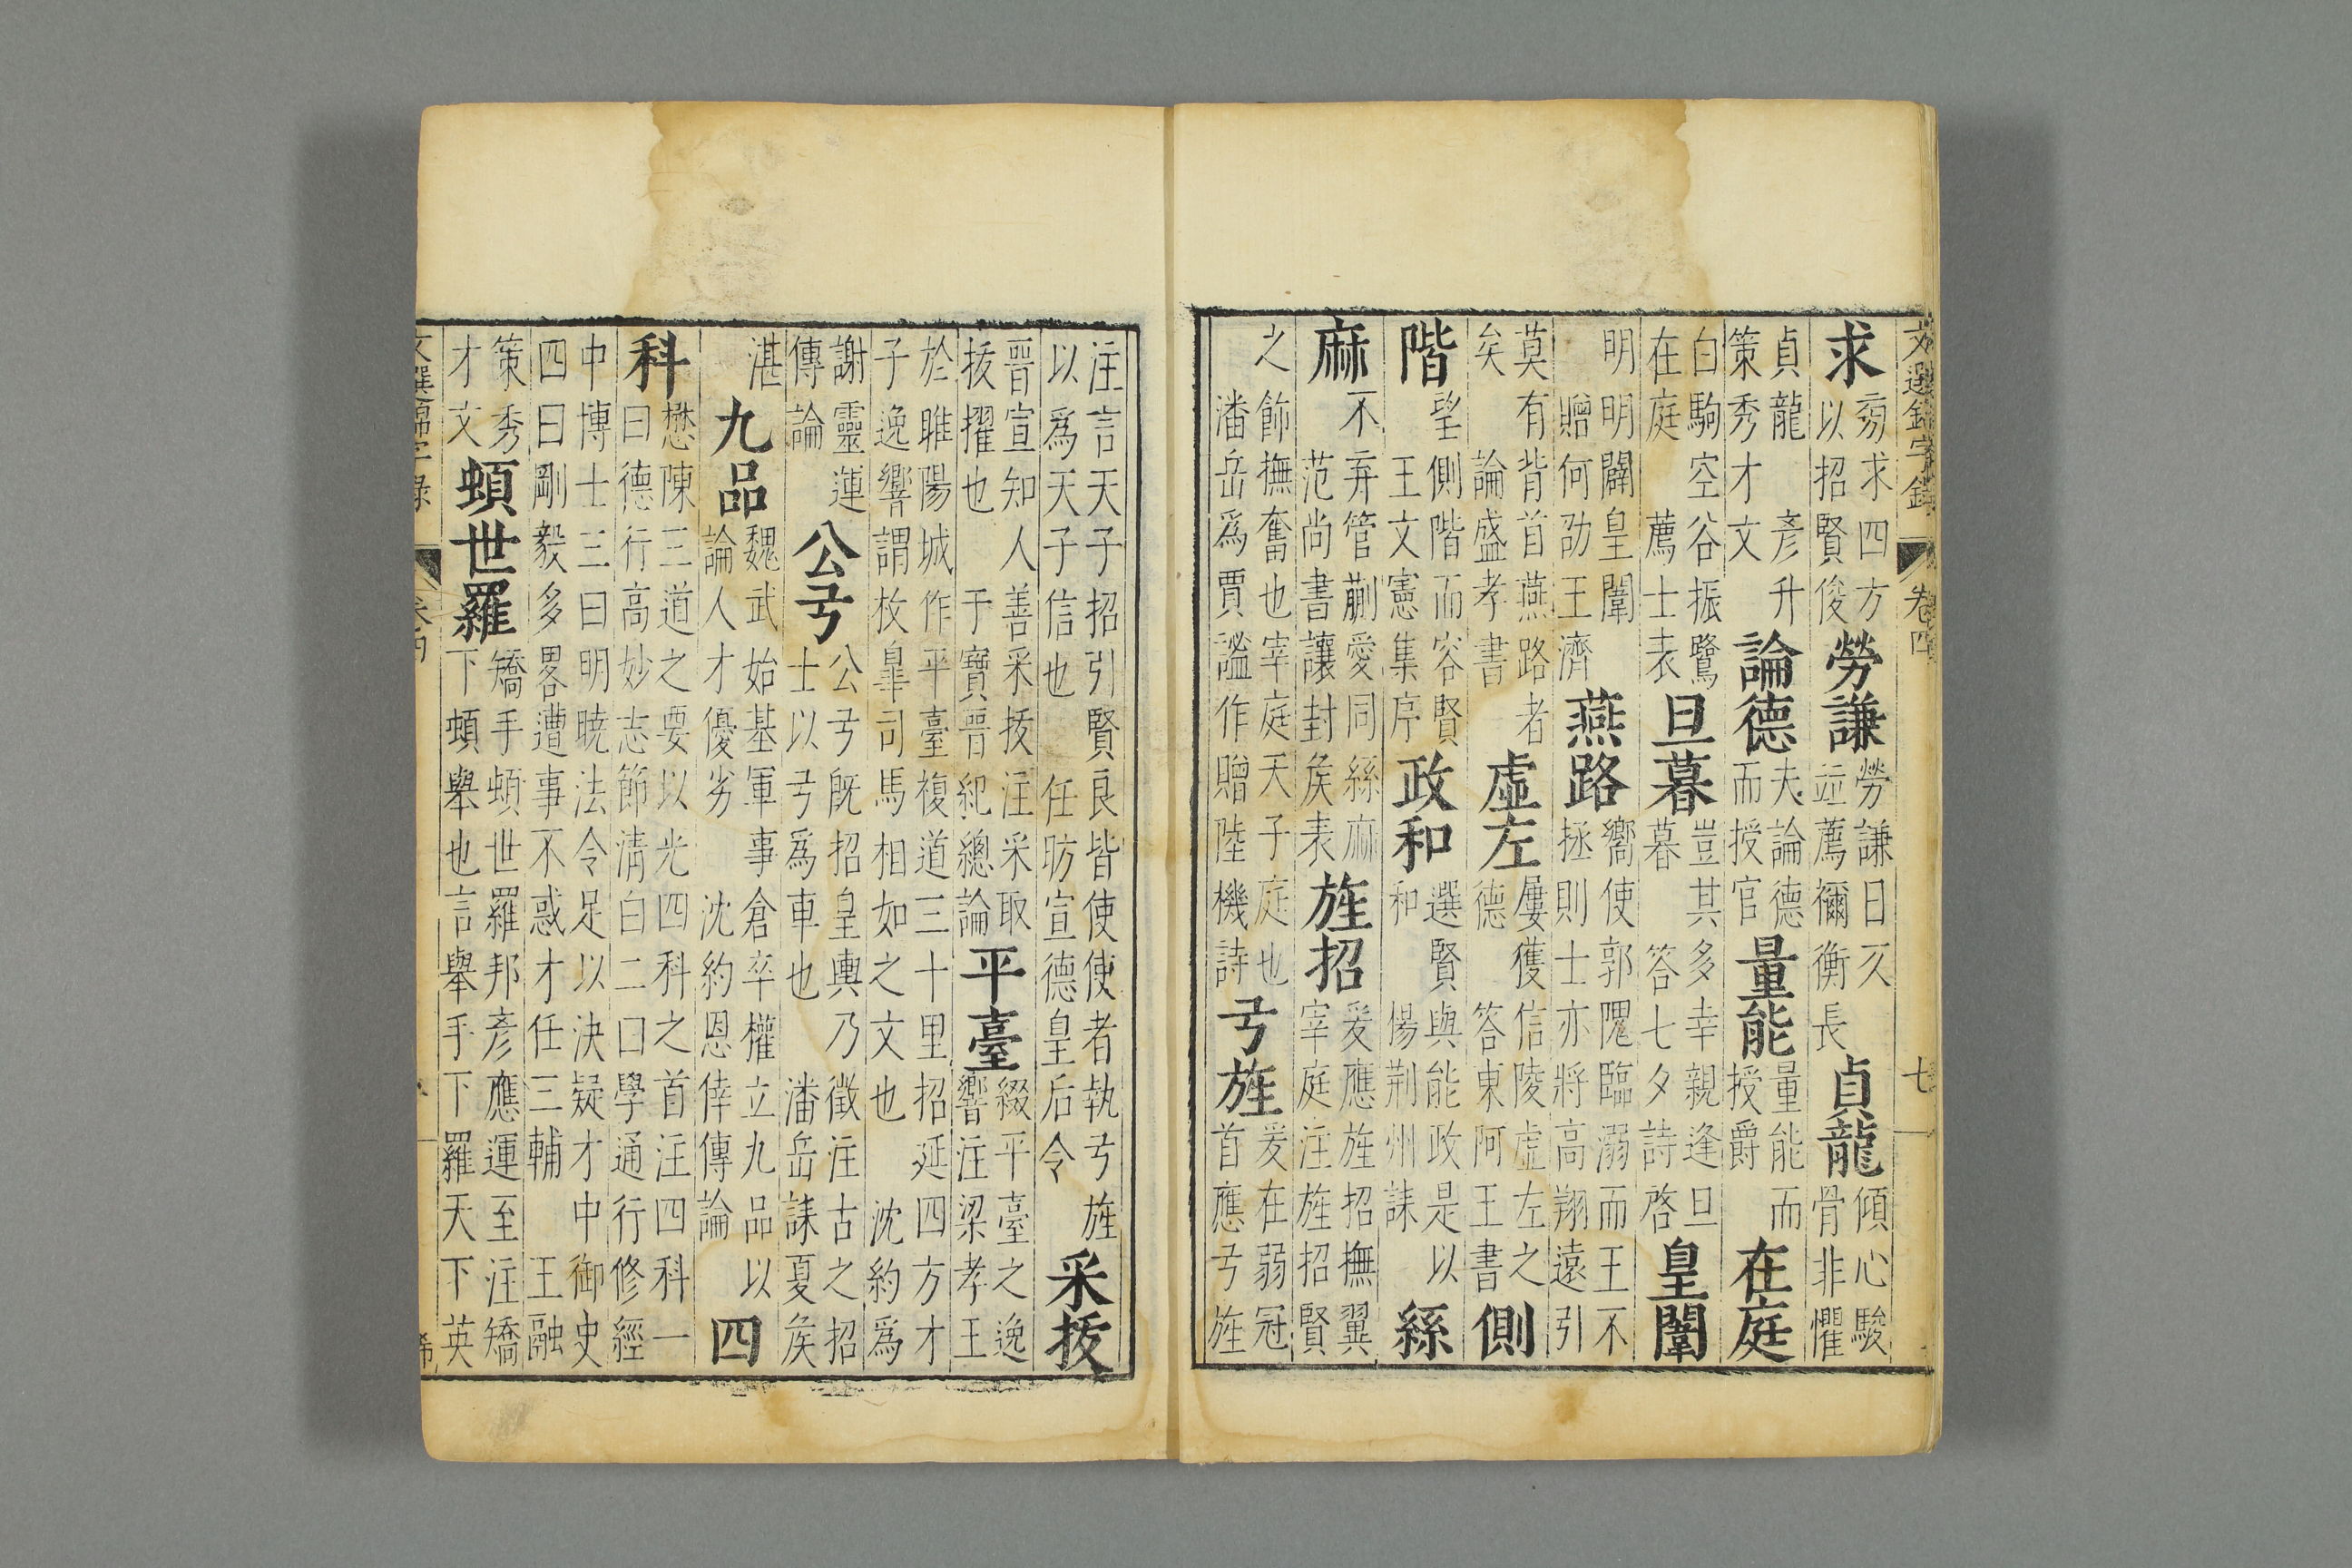 文選錦字錄 卷四 七
求旁求四方以招賢俊勞謙勞謙日仄竝薦禰衡長貞龍傾心駿骨非懼
貞龍彥升策秀才文論德夫論德而授官量能量能而授爵在庭
白駒空谷振鷺在庭薦士表旦暮豈其多幸親逢旦暮答七夕詩啓皇闈
明明闢皇闈贈何劭王濟燕路嚮使郭隗臨溺而王不拯則士亦將高翔遠引
莫有背首燕路者矣論盛孝書虛左屢獲信陵虛左之德答東阿王書側
階望側階而容賢王文憲集序政和選賢與能政是以和楊荊州誄絲
麻不弃管蒯愛同絲麻范尚書讓封矦表旌招爰應旌招撫翼宰庭注旌招賢
之飾撫奮也宰庭天子庭也潘岳爲賈謐作贈陸機詩弓旌爰在弱冠首應弓旌
注言天子招引賢良皆使使者執弓旌以爲天子信也任昉宣德皇后令采拔
晉宣知人善采拔注采取拔擢也于寶晉紀總論平臺綴平臺之逸響注梁孝王
於睢陽城作平臺複道三十里招延四方才子逸響謂枚臯司馬相如之文也沈約爲
謝靈運傳論公弓公弓既招皇輿乃徵注古之招士以弓爲車也潘岳誄夏矦
湛九品魏武始基軍事倉卒權立九品以論人才優劣沈約恩倖傳論四
科懋陳三道之要以光四科之首注四科一曰德行高妙志節清白二曰學通行修經
中博士三曰明曉法令足以決疑才中御史四曰剛毅多畧遭事不惑才任三輔王融
策秀才文頓世羅矯手頓世羅邦彥應運至注矯下頓舉也言舉手下羅天下英